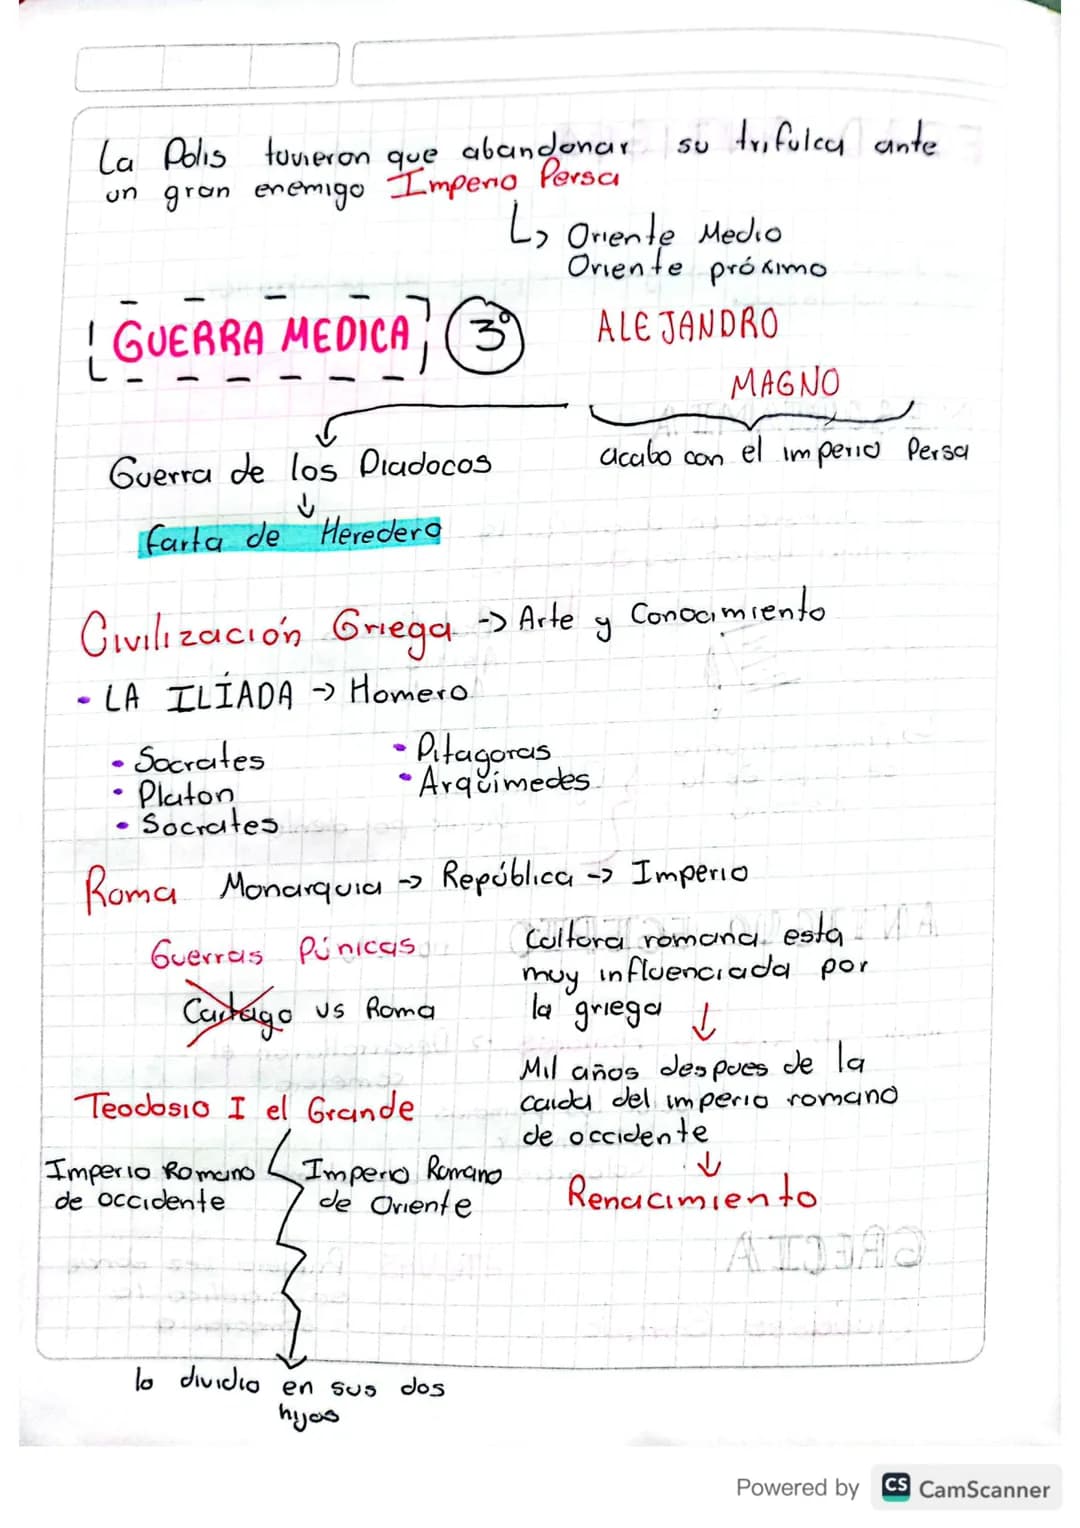 La Polis tuvieron que abandonar su trifulca ante
un gran enemigo Imperio Persa
↳ Oriente Medio
Oriente próximo
GUERRA MEDICA 3°
ALEJANDRO
MAGNO
acabo con el imperio Persa
Guerra de los Diadocos
↓
farta de Heredero
Civilización Griega -> Arte y Conocimiento
• LA ILÍADA -> Homero
• Socrates
• Platon
• Socrates
• Pitagoras
• Arquimedes
Roma Monarquia -> República -> Imperio
Guerras Púnicas
Cartago vs Roma
Cultura romana esta
muy influenciada por
la griega ↓
Mil años despues de la
caida del imperio romano
de occidente
↓
Renacimiento
Teodosio I el Grande
Imperio Romano
de occidente
Imperio Romano
de Oriente
lo dividio en sus dos
hijos
Powered by CS CamScanner